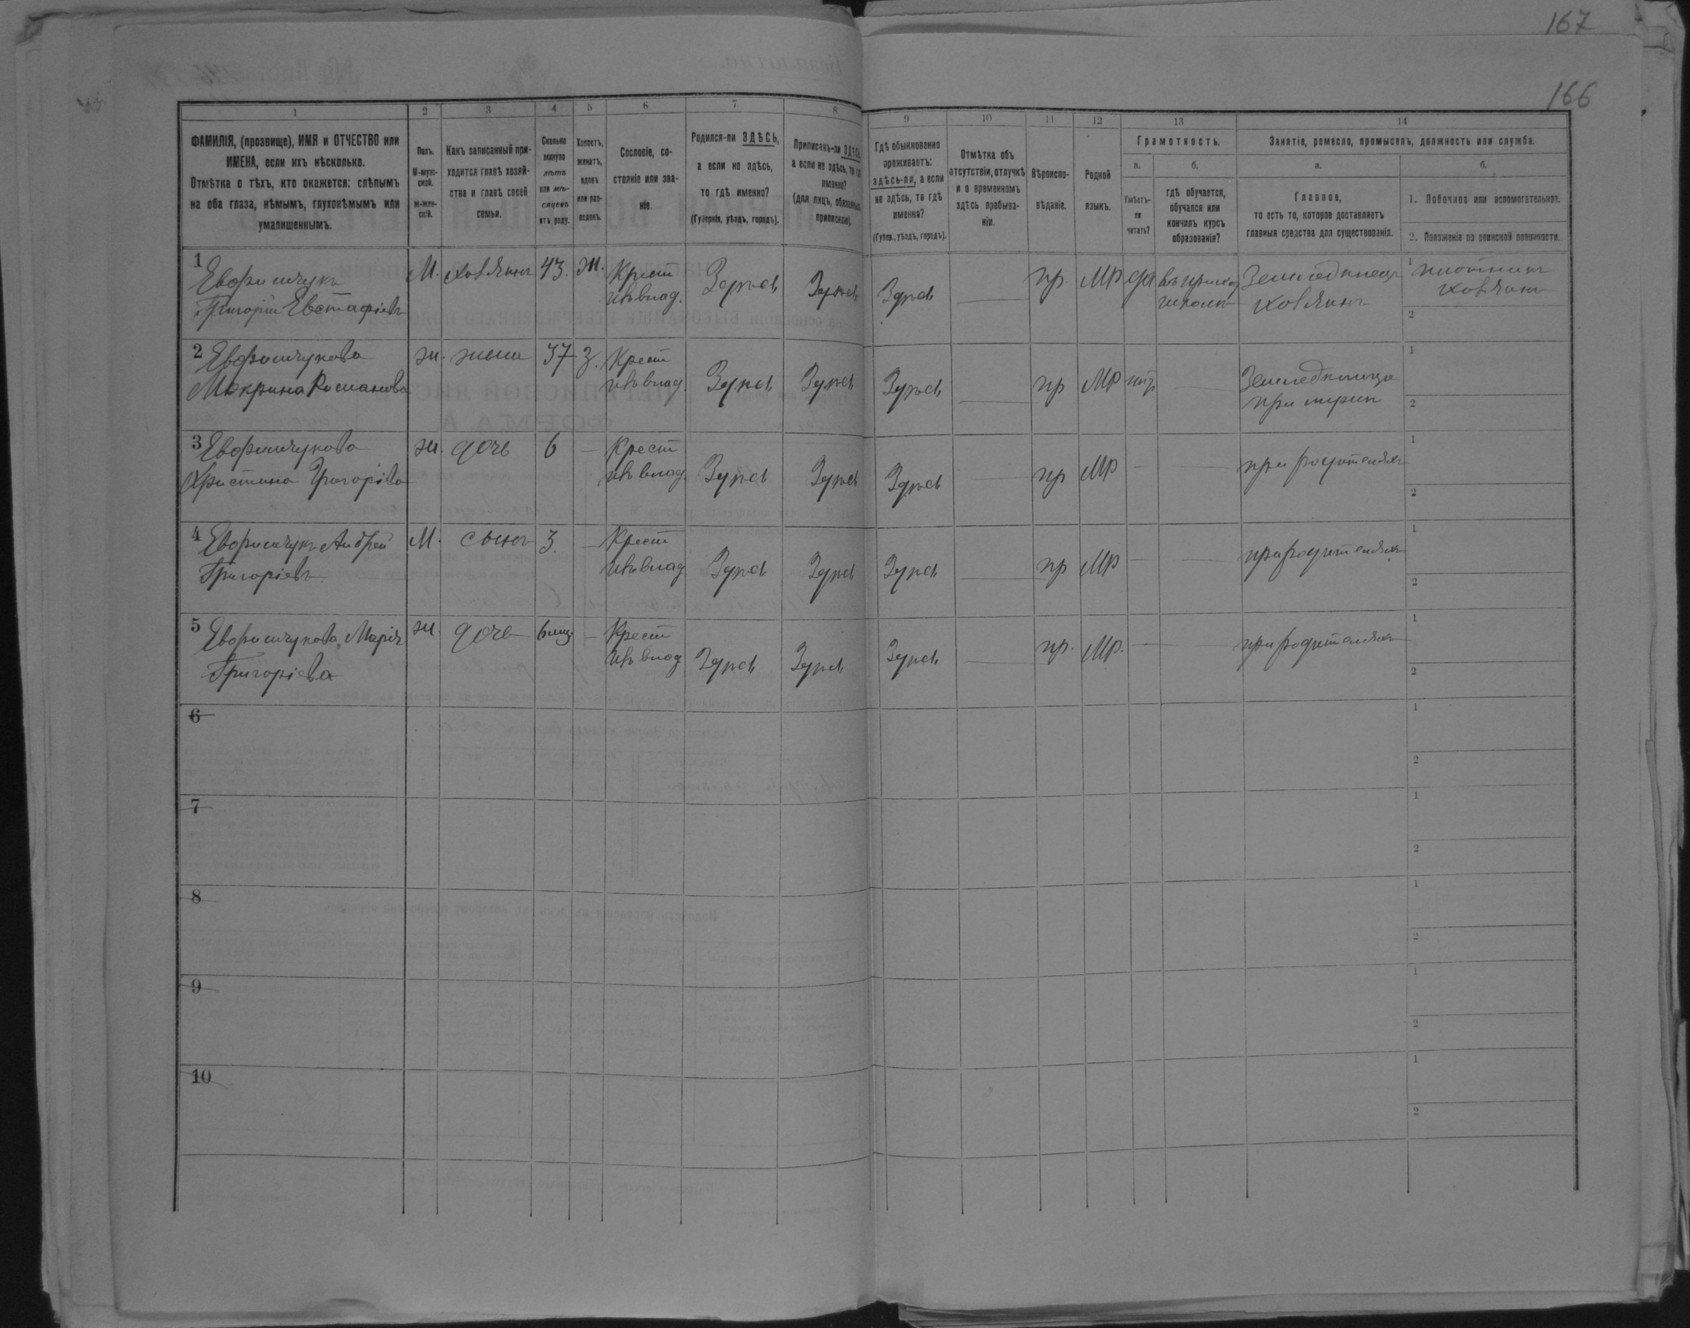 167
166
1
2
3
4
5
6
7
8
9
10
11
12
13
14
ФАМИЛІЯ, (прозвище), ИМЯ и ОТЧЕСТВО или
ИМЕНА, если ихъ нѣсколько.
Отмѣтка о тѣхъ, кто окажется: слѣпымъ
на оба глаза, нѣмымъ, глухонѣмымъ или
умалишеннымъ.
Полъ.
М-муж-
ской.
Ж-жен-
скій.
Какъ записанный при-
ходится главѣ хозяй-
ства и главѣ своей
семьи.
Сколько
минуло
лѣтъ
или мѣ-
сяцевъ
отъ роду.
Холостъ,
женатъ,
вдовъ
или раз-
веденъ.
Сословіе, со-
стояніе или зва-
ніе.
Родился-ли ЗДѢСЬ,
а если не здѣсь,
то гдѣ именно?
(Губернія, уѣздъ, городъ).
Приписанъ-ли ЗДѢСЬ
а если не здѣсь, то гдѣ
именно?
(для лицъ, обязанныхъ
припискою).
Гдѣ обыкновенно
проживаетъ:
здѣсь-ли, а если
не здѣсь, то гдѣ
именно?
(Губер., уѣздъ, городъ).
Отмѣтка объ
отсутствіи, отлучкѣ
и о временномъ
здѣсь пребыва-
ніи.
Вѣроиспо-
вѣданіе.
Родной
языкъ.
Грамотность.
а.
б.
Умѣетъ-
ли
читать?
гдѣ обучается,
обучался или
кончилъ курсъ
образованія?
Занятіе, ремесло, промыселъ, должность или служба.
а.
б.
Главное,
то есть то, которое доставляетъ
главныя средства для существованія.
1. Побочное или вспомогательное.
2. Положеніе по воинской повинности.
1
Григорій Евстафіевъ
М.
хозяинъ
43.
Ж.
Крест
Здѣсь
Здѣсь
Здѣсь
пр
МР
да
школѣ
Земледѣлецъ
хозяинъ
1
плотникъ
хозяинъ
2
2
Макрина Романова
ж.
жена
37
З.
Крест
Здѣсь
Здѣсь
Здѣсь
пр
МР
нѣт
при мужѣ
1
2
3
Христина Григоріева
ж.
дочь
6
Крест
Здѣсь
Здѣсь
Здѣсь
пр
МР
при родителяхъ
1
2
4
Андрей
Григоріевъ
М.
сынъ
3.
Крест
Здѣсь
Здѣсь
Здѣсь
пр
МР
при родителяхъ
1
2
5
Марія
Григоріева
ж.
дочь
6 мц.
Крест
Здѣсь
Здѣсь
Здѣсь
пр.
МР.
при родителяхъ
1
2
6
1
2
7
1
2
8
1
2
9
1
2
10
1
2